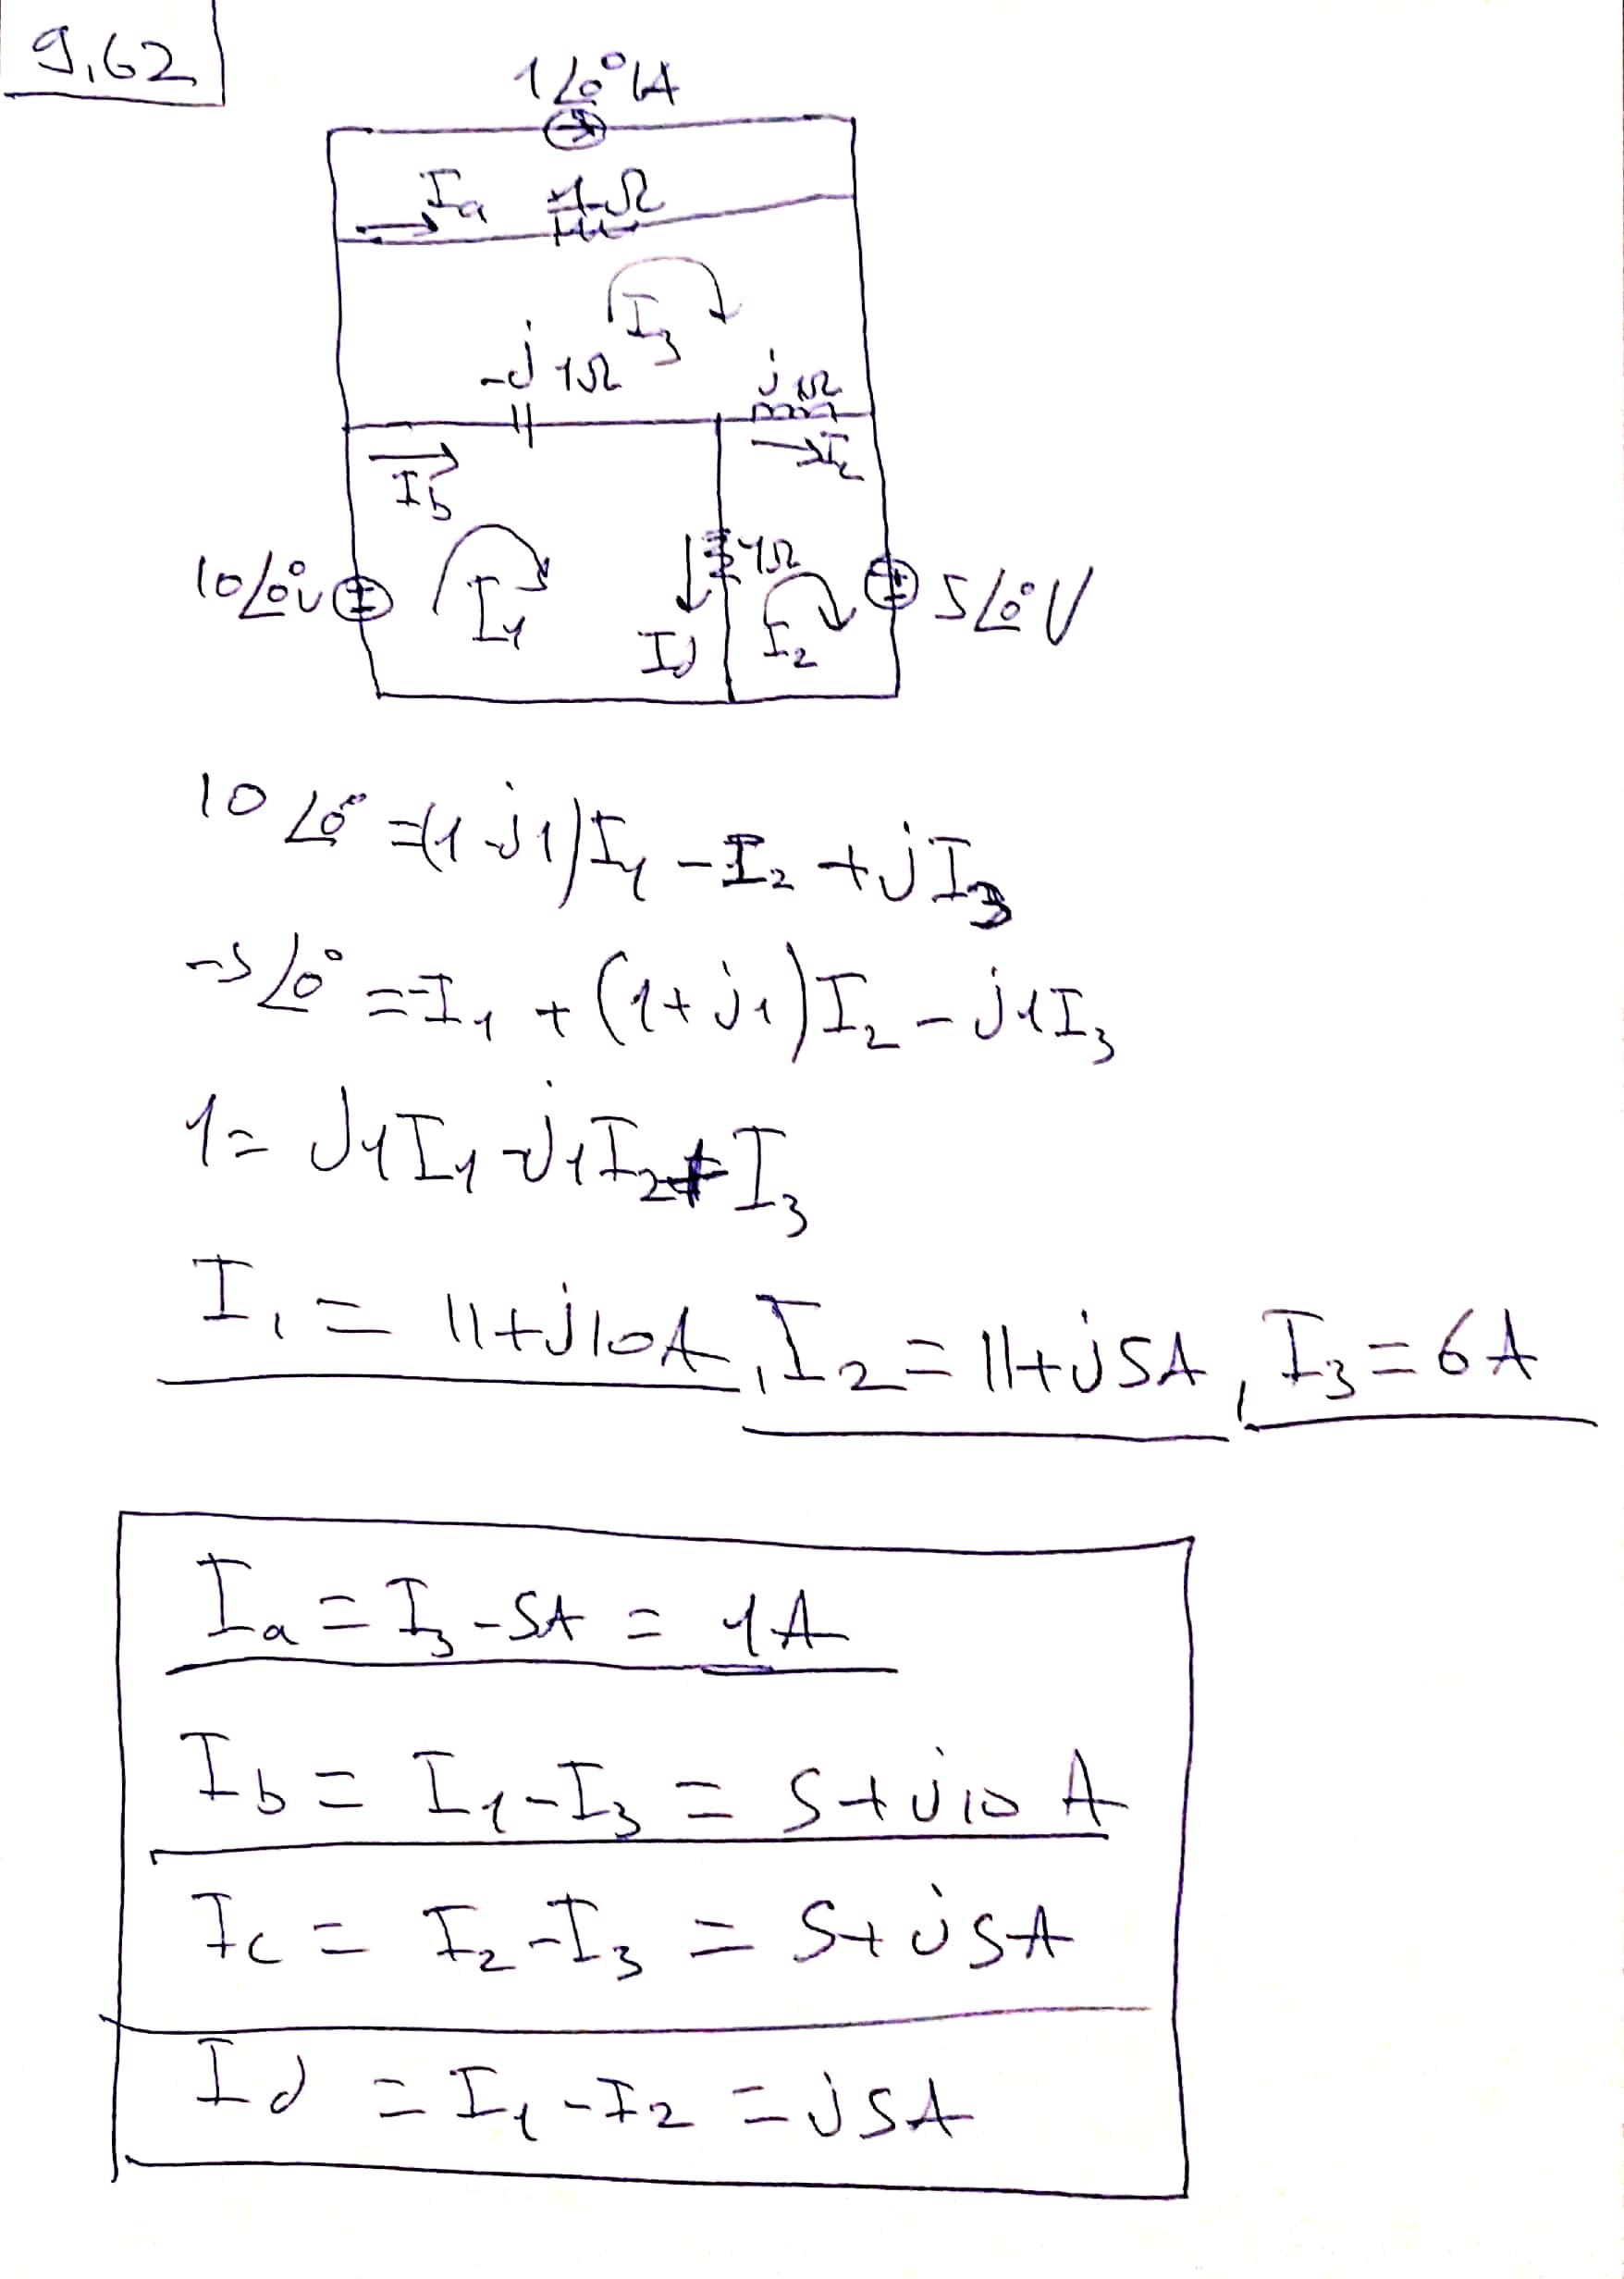 9,62
1∠0° A
Ia 1Ω
I3
-j1Ω j1Ω
Ib Ic
10∠0° V I1 1Ω 5∠0° V
Id I2
10∠0° = (1-j1)I1 - I2 + jI3
-5∠0° = -I1 + (1+j1)I2 - j1I3
1 = j1I1 - j1I2 + I3
I1 = 11+j10A, I2 = 11+j5A, I3 = 6A
Ia = I3 - 5A = 1A
Ib = I1 - I3 = 5+j10 A
Ic = I2 - I3 = 5+j5A
Id = I1 - I2 = j5A